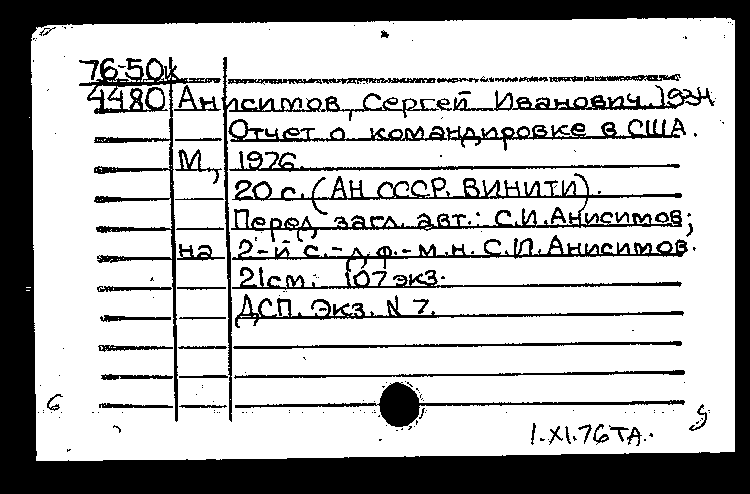 76-50к
4480 Анисимов, Сергей Иванович. 1934
Отчет о командировке в США.
М., 1976.
20 с. (АН СССР. ВИНИТИ).
Перед загл. авт.: С.И.Анисимов;
на 2-й с.-д.ф.-м.н. С.И.Анисимов.
21см. 107 экз.
ДСП. Экз. N 7.
6
1.XI.76ТА.